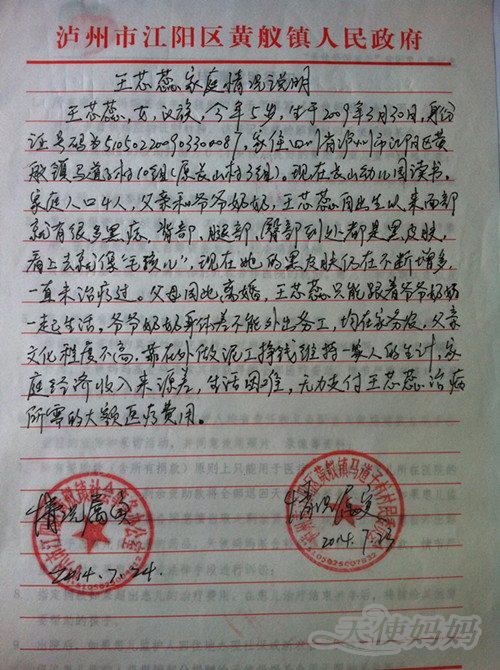 泸州市江阳区黄舣镇人民政府
王芯蕊家庭情况说明
王芯蕊，女，汉族，今年5岁，生于2009年3月30日，身份
证号码为510502200903300087，家住四川省泸州市江阳区黄
舣镇马道子村10组（原长山村3组）。现在长山幼儿园读书。
家庭人口4人，父亲和爷爷奶奶，王芯蕊自出生以来面部
就有很多黑痣，背部、腿部、臀部到处都是黑皮肤，
看上去就像“毛孩儿”，现在她的黑皮肤仍在不断增多，
一直未治疗过。父母因此离婚，王芯蕊只能跟着爷爷奶奶
一起生活，爷爷奶奶身体差不能外出务工，均在家务农，父亲
文化程度不高，靠在外做泥工挣钱维持一家人的生计，家
庭经济收入来源差，生活困难，无力支付王芯蕊治病
所需的大额医疗费用。
情况属实
2014.7.24.
情况属实
2014.7.23
天使妈妈